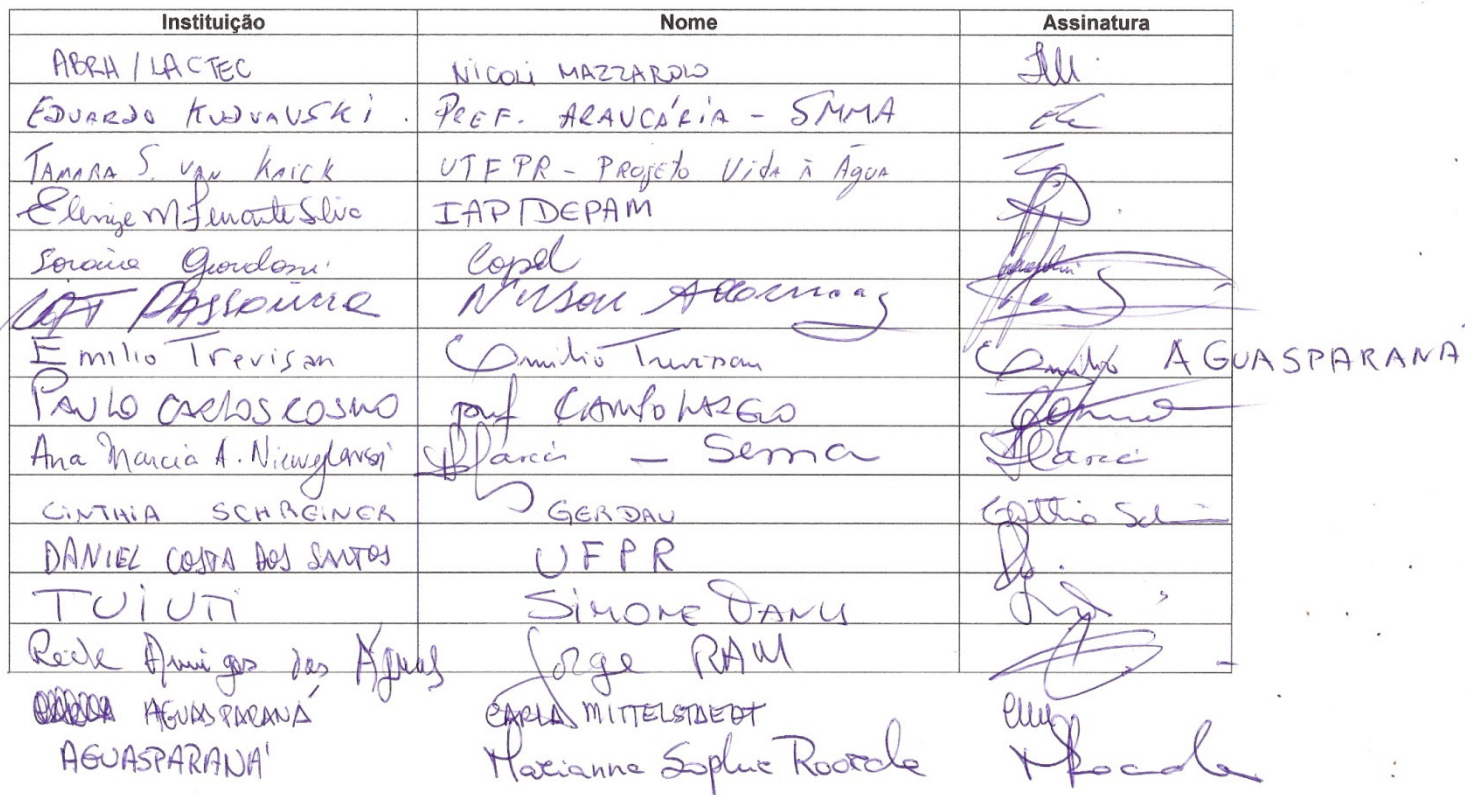 Instituição Nome Assinatura
ABRH / LACTEC NICOLI MAZZAROLO
EDUARDO PREF. ARAUCÁRIA - SMMA
TAMARA S. VAN KAICK UTFPR - PROJETO Vida à Água
Silva IAP/DEPAM
Copel
Nilson
Emilio Trevisan Emilio Trevisan Emilio AGUASPARANÁ
PAULO CARLOS COSMO pref CAMPO LARGO
Ana Marcia A. Marcia - Sema Marcia
CINTHIA SCHREINER GERDAU Cinthia
DANIEL COSTA DOS SANTOS UFPR
TUIUTI SIMONE
Rede Amigos das Águas Jorge RAM
AGUASPARANÁ CARLA MITTELSTAEDT
AGUASPARANÁ Marianna Sophie Roorda MRoorda